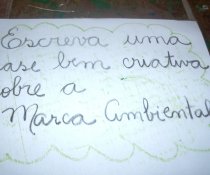 Escreva uma
ase bem criativa
obre a
Marca Ambiental